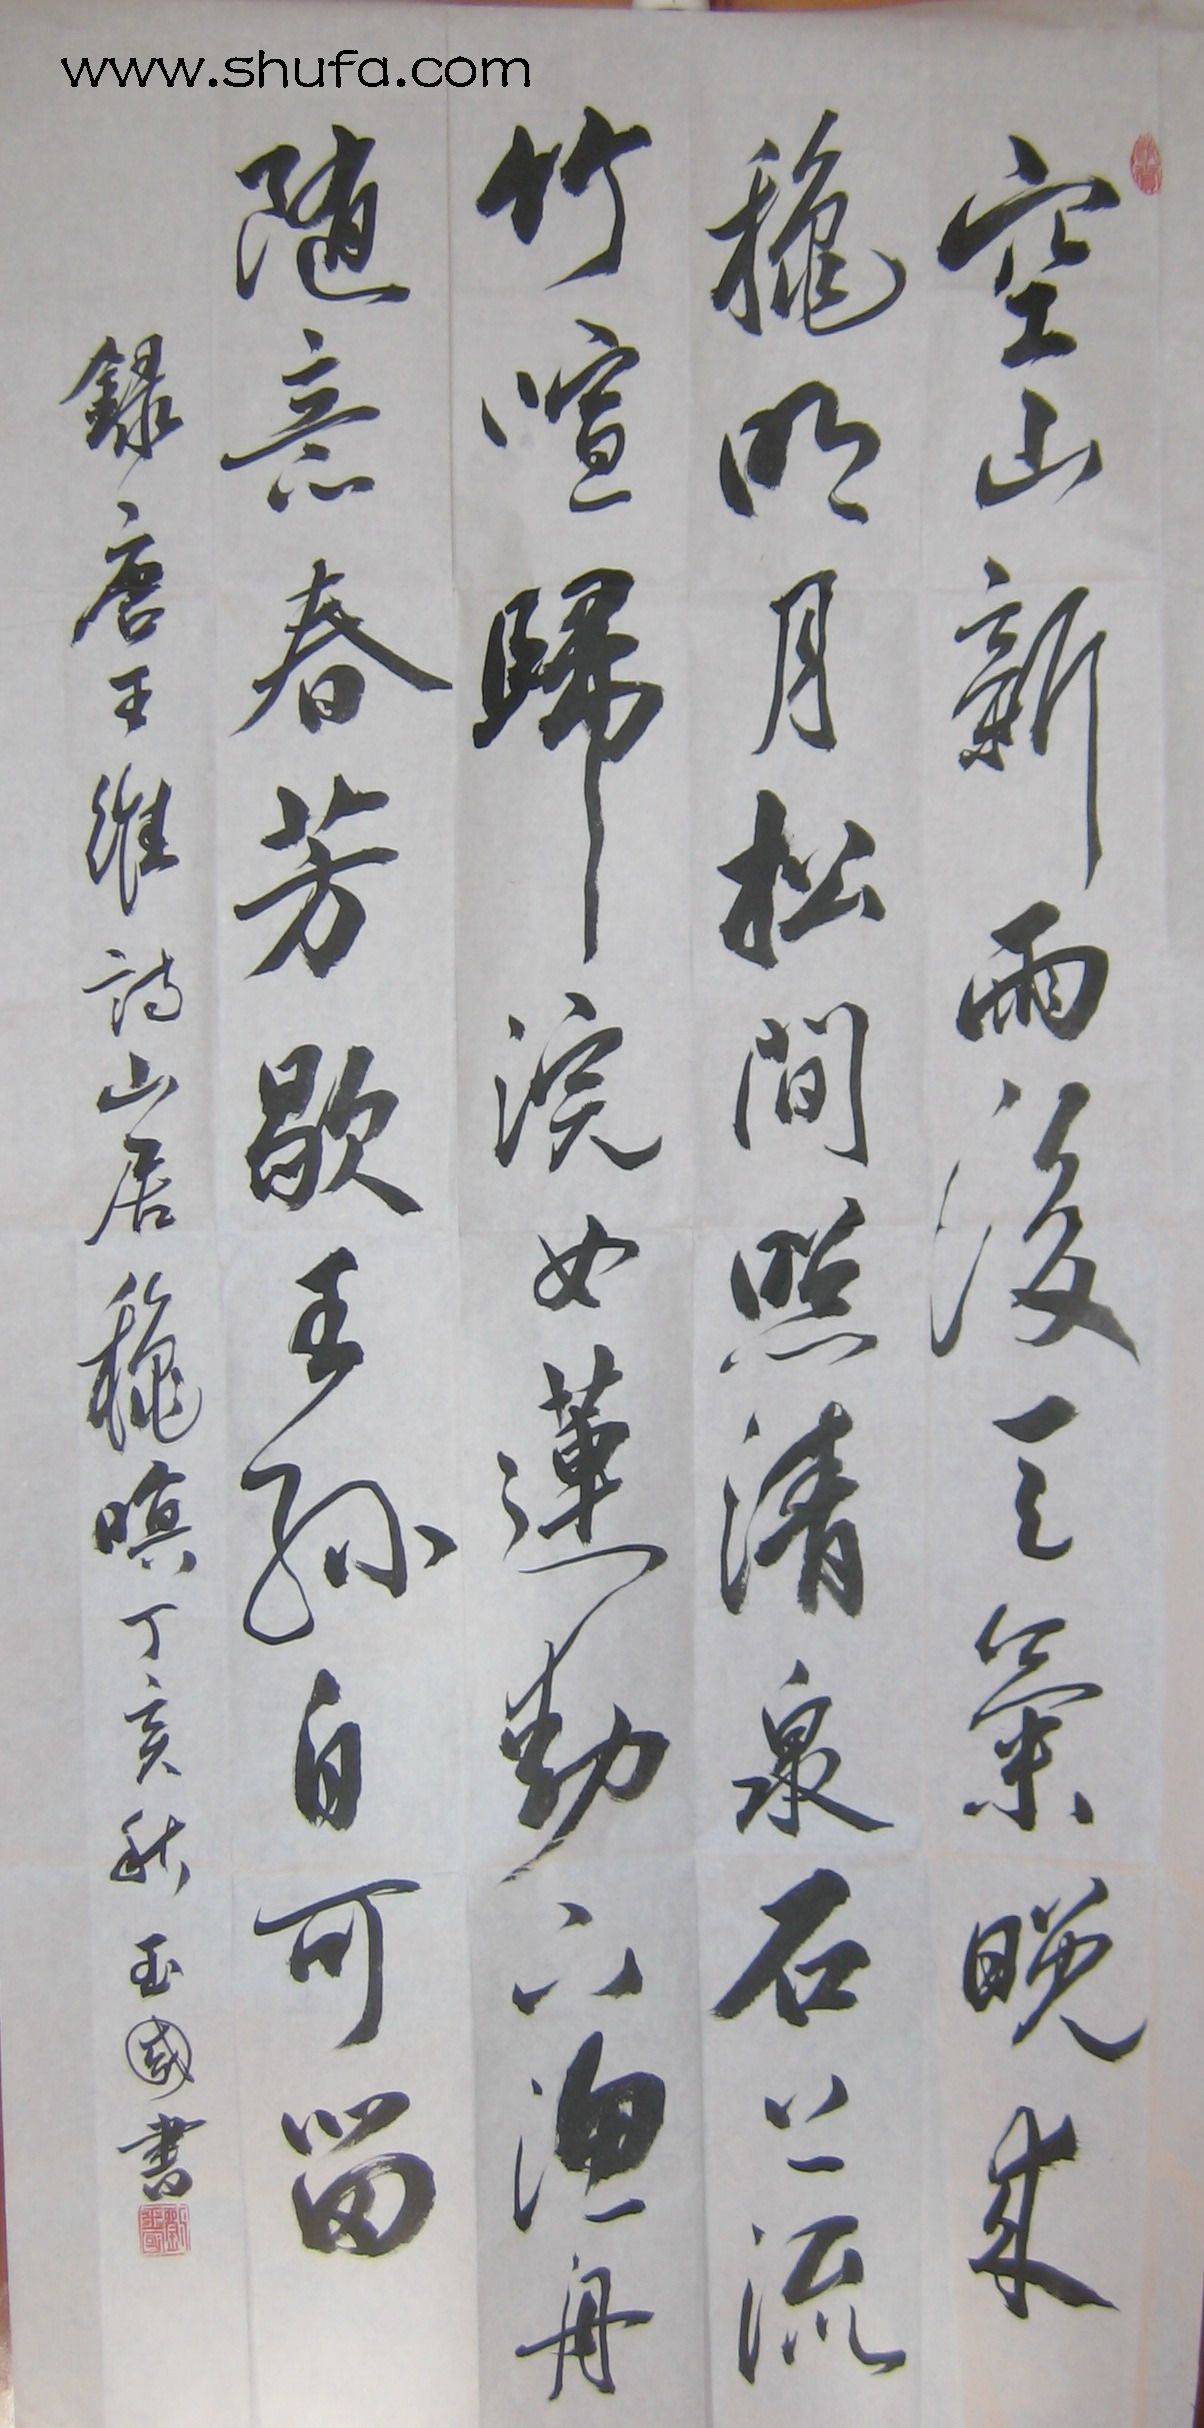 www.shufa.com
空山新雨後天氣晚來
穐明月松間照清泉石上流
竹喧歸浣女蓮動下漁舟
隨意春芳歇王孫自可留
錄唐王維詩山居穐暝丁亥秋玉國書